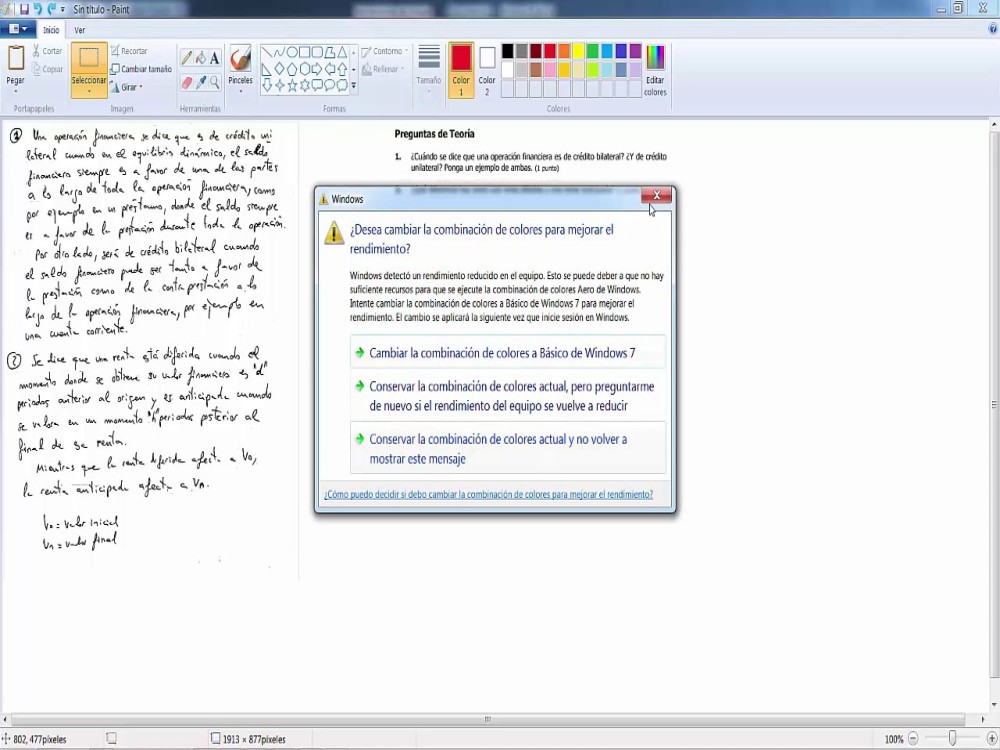 Sin título - Paint
Inicio
Ver
Pegar
Cortar
Copiar
Portapapeles
Seleccionar
Recortar
Cambiar tamaño
Girar
Imagen
A
Herramientas
Pinceles
Contorno
Rellenar
Formas
Tamaño
Color 1
Color 2
Editar colores
Colores
① Una operación financiera se dice que es de crédito uni
lateral cuando en el equilibrio dinámico, el saldo
financiero siempre es a favor de una de las partes
a lo largo de toda la operación financiera, como
por ejemplo en un préstamo, donde el saldo siempre
es a favor de la prestación durante toda la operación.
Por otro lado, será de crédito bilateral cuando
el saldo financiero puede ser tanto a favor de
la prestación como de la contraprestación a lo
largo de la operación financiera, por ejemplo en
una cuenta corriente.
② Se dice que una renta está diferida cuando el
momento donde se obtiene su valor financiero es "d"
periodos anterior al origen y es anticipada cuando
se valora en un momento "h" periodos posterior al
final de la renta.
Mientras que la renta diferida afecta a V0,
la renta anticipada afecta a Vn.
V0 = valor inicial
Vn = valor final
Preguntas de Teoría
1. ¿Cuándo se dice que una operación financiera es de crédito bilateral? ¿Y de crédito
unilateral? Ponga un ejemplo de ambas. (1 punto)
Windows
¿Desea cambiar la combinación de colores para mejorar el
rendimiento?
Windows detectó un rendimiento reducido en el equipo. Esto se puede deber a que no hay
suficiente recursos para que se ejecute la combinación de colores Aero de Windows.
Intente cambiar la combinación de colores a Básico de Windows 7 para mejorar el
rendimiento. El cambio se aplicará la siguiente vez que inicie sesión en Windows.
Cambiar la combinación de colores a Básico de Windows 7
Conservar la combinación de colores actual, pero preguntarme
de nuevo si el rendimiento del equipo se vuelve a reducir
Conservar la combinación de colores actual y no volver a
mostrar este mensaje
¿Cómo puedo decidir si debo cambiar la combinación de colores para mejorar el rendimiento?
802, 477píxeles
1913 × 877píxeles
100%